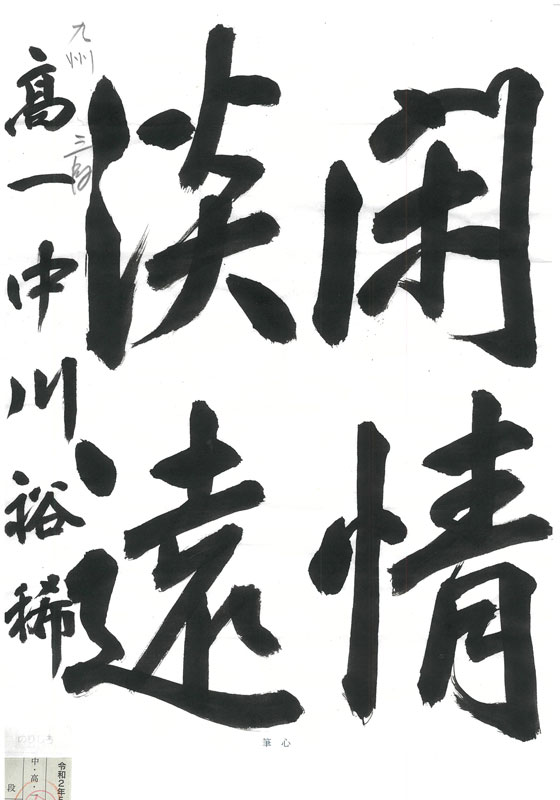 閑情
淡遠
高一中川裕稀
九州
三席
筆心
令和2年5
中・高・
段